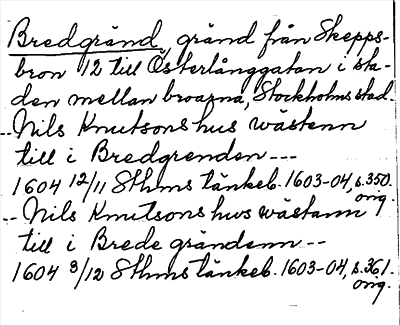 Bredgränd, gränd från Skepps-
bron 12 till Österlånggatan i sta-
den mellan broarna, Stockholms stad.
-- Nils Knutsons hus wästenn
till i Bredgrenden ---
1604 12/11 Sthms tänkeb. 1603-04, s.350.
orig.
-- Nils Knutsons hws wästann
till i Brede grändenn --
1604 3/12 Sthms tänkeb. 1603-04, s.361.
orig.